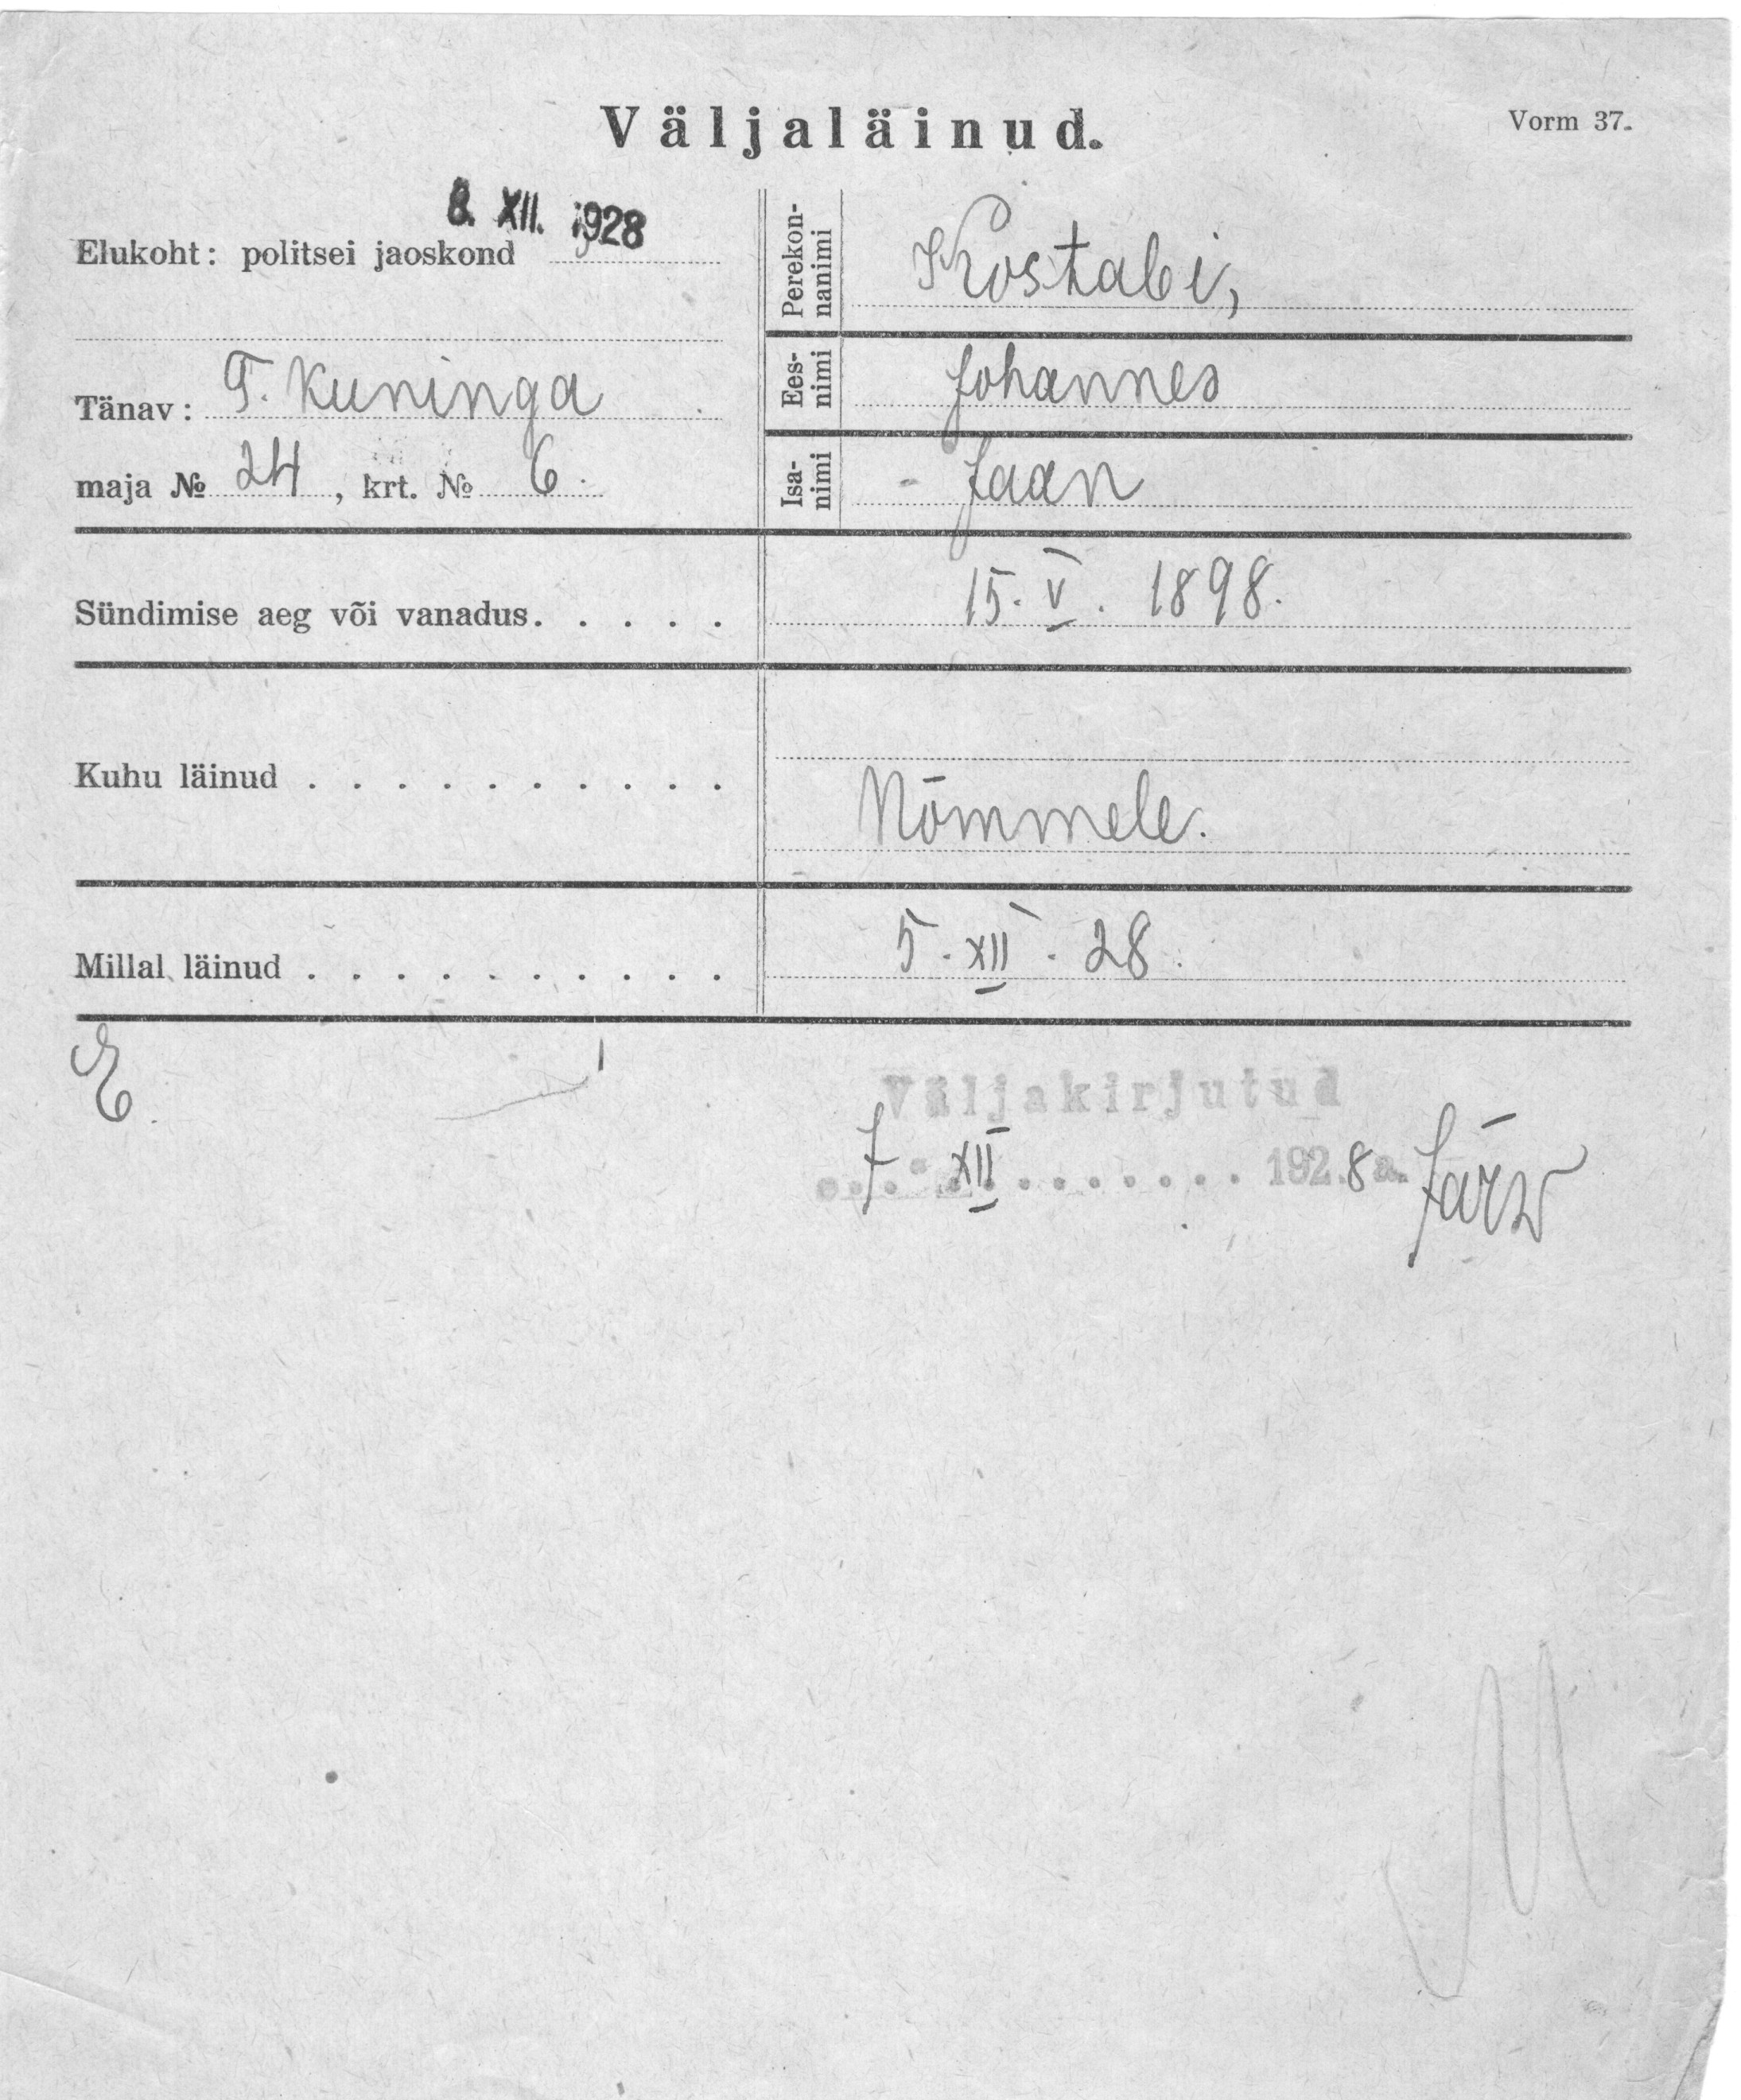 Väljaläinud.
Vorm 37.
8. XII. 1928
Elukoht: politsei jaoskond
Tänav: T. Kuninga
maja № 24, krt. № 6.
Perekon-
nanimi
Kostabi,
Ees-
nimi
Johannes
Isa-
nimi
- Jaan
Sündimise aeg või vanadus. . . . . 15. V. 1898.
Kuhu läinud . . . . . . . . . . Nõmmele.
Millal läinud . . . . . . . . . . 5. XII. 28.
E.
Väljakirjutud
7. XII . . . . . . . 1928 a. Järw